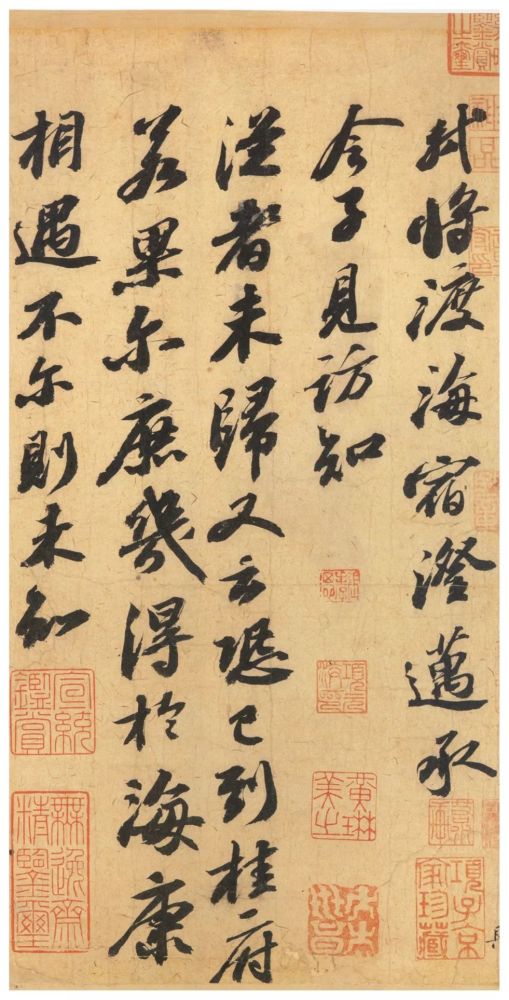 軾將渡海宿澄邁承
令子見訪知
從者未歸又云恐已到桂府
若果尔庶幾得於海康
相遇不尔則未知
項子京家珍藏
黄琳美之
宣統鑑賞
無逸齋精鑒璽